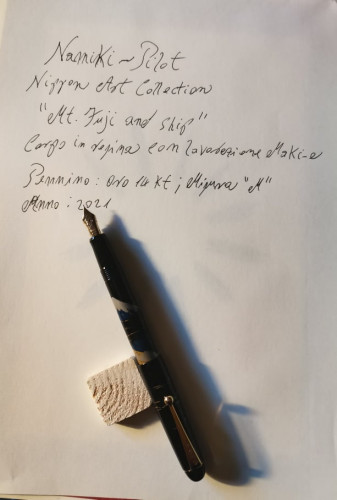 Namiki ~ Pilot
Nippon Art Collection
"Mt. Fuji and Ship"
Corpo in resina con lavorazione Maki-e
Pennino: oro 14 Kt; Misura "M"
Anno: 2021